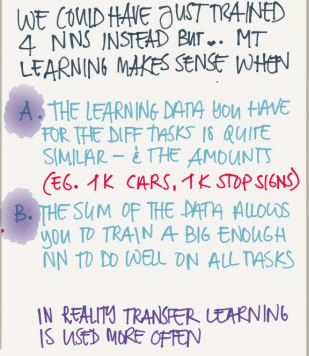 WE COULD HAVE JUST TRAINED
4 NNS INSTEAD BUT... MT
LEARNING MAKES SENSE WHEN
A. THE LEARNING DATA YOU HAVE
FOR THE DIFF TASKS IS QUITE
SIMILAR - & THE AMOUNTS
(EG. 1K CARS, 1K STOPSIGNS)
B. THE SUM OF THE DATA ALLOWS
YOU TO TRAIN A BIG ENOUGH
NN TO DO WELL ON ALL TASKS
IN REALITY TRANSFER LEARNING
IS USED MORE OFTEN